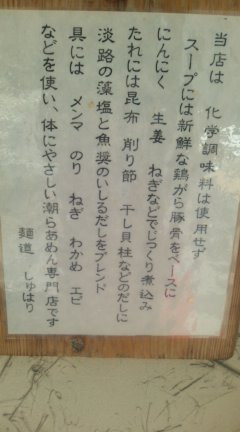 当店は 化学調味料は使用せず
スープには新鮮な鶏がら豚骨をベースに
にんにく 生姜 ねぎなどでじっくり煮込み
たれには昆布 削り節 干し貝柱などのだしに
淡路の藻塩と魚奨のいしるだしをブレンド
具には メンマ のり ねぎ わかめ エビ
などを使い、体にやさしい潮らあめん専門店です
麺道 しゅはり